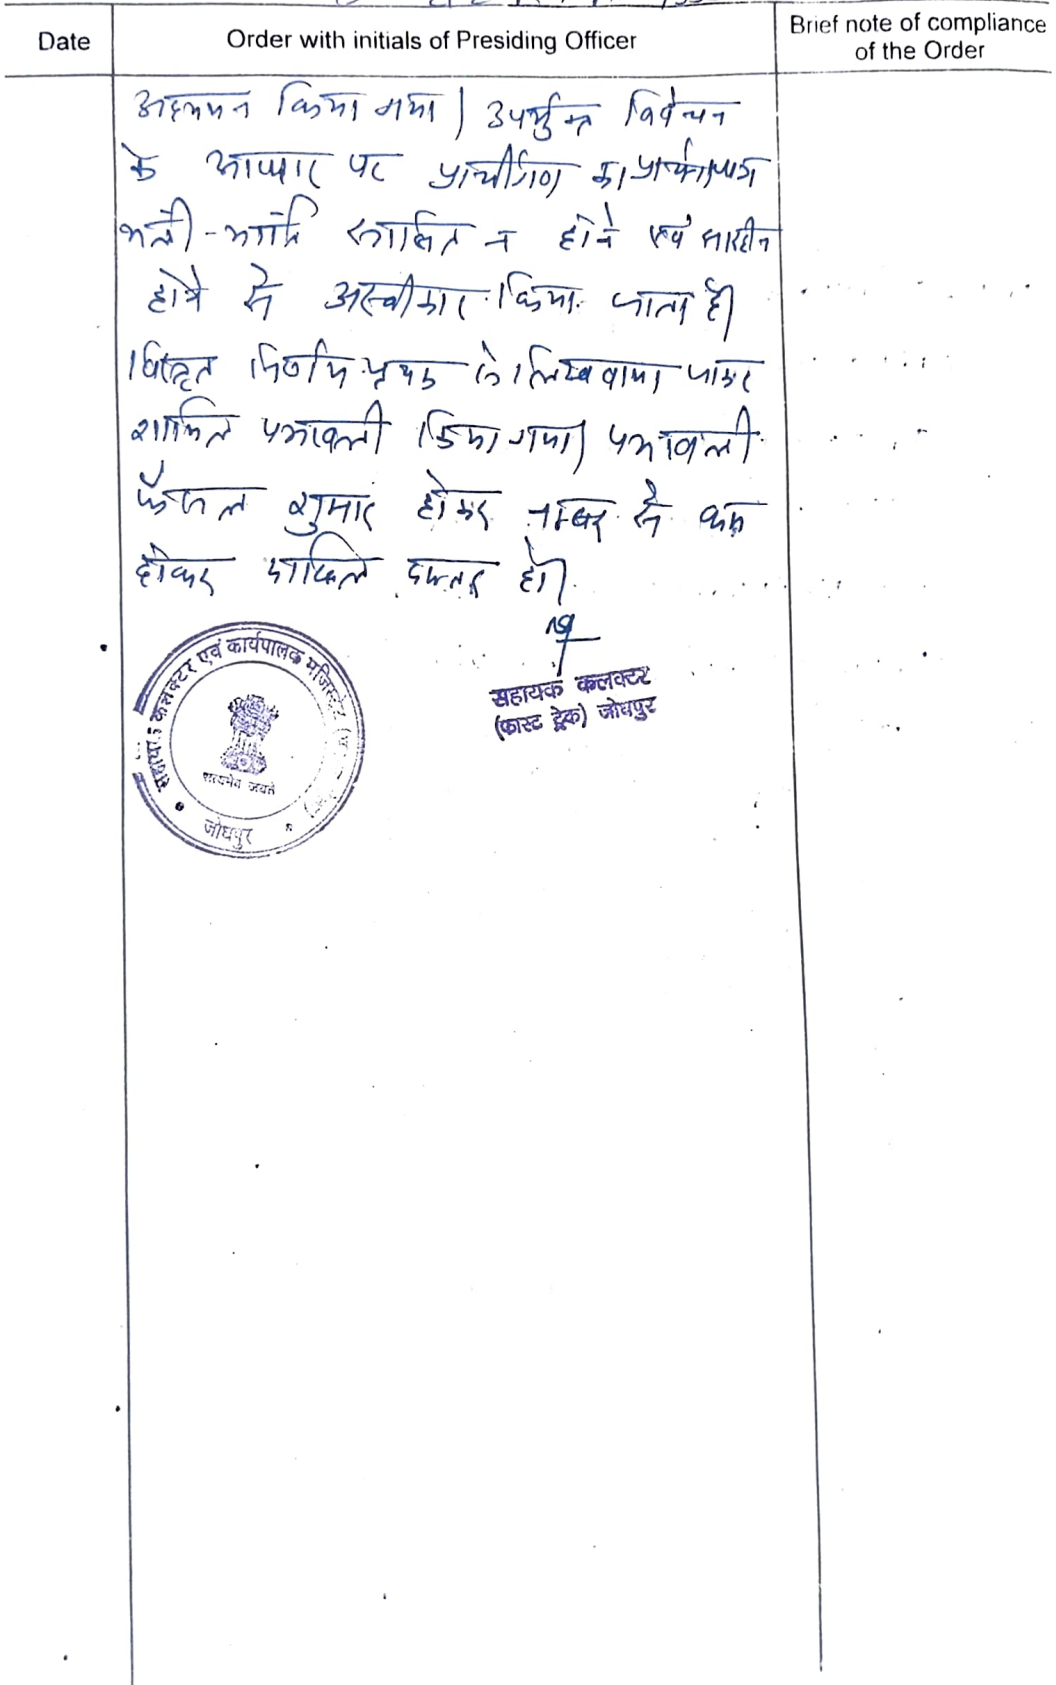 Date
Order with initials of Presiding Officer
Brief note of compliance
of the Order
अध्ययन किया गया। उपर्युक्त विवेचन
के आधार पर प्रार्थीगण का प्रार्थनापत्र
भली-भांति साबित न होने एवं सारहीन
होने से अस्वीकार किया जाता है।
विस्तृत निर्णय पृथक से लिखवाया जाकर
शामिल पत्रावली किया गया। पत्रावली
फैसल शुमार होकर नम्बर से कम
होकर दाखिल दफ्तर हो।
सहायक कलक्टर
(फास्ट ट्रेक) जोधपुर
कलक्टर एवं कार्यपालक मजिस्ट्रेट
सत्यमेव जयते
जोधपुर